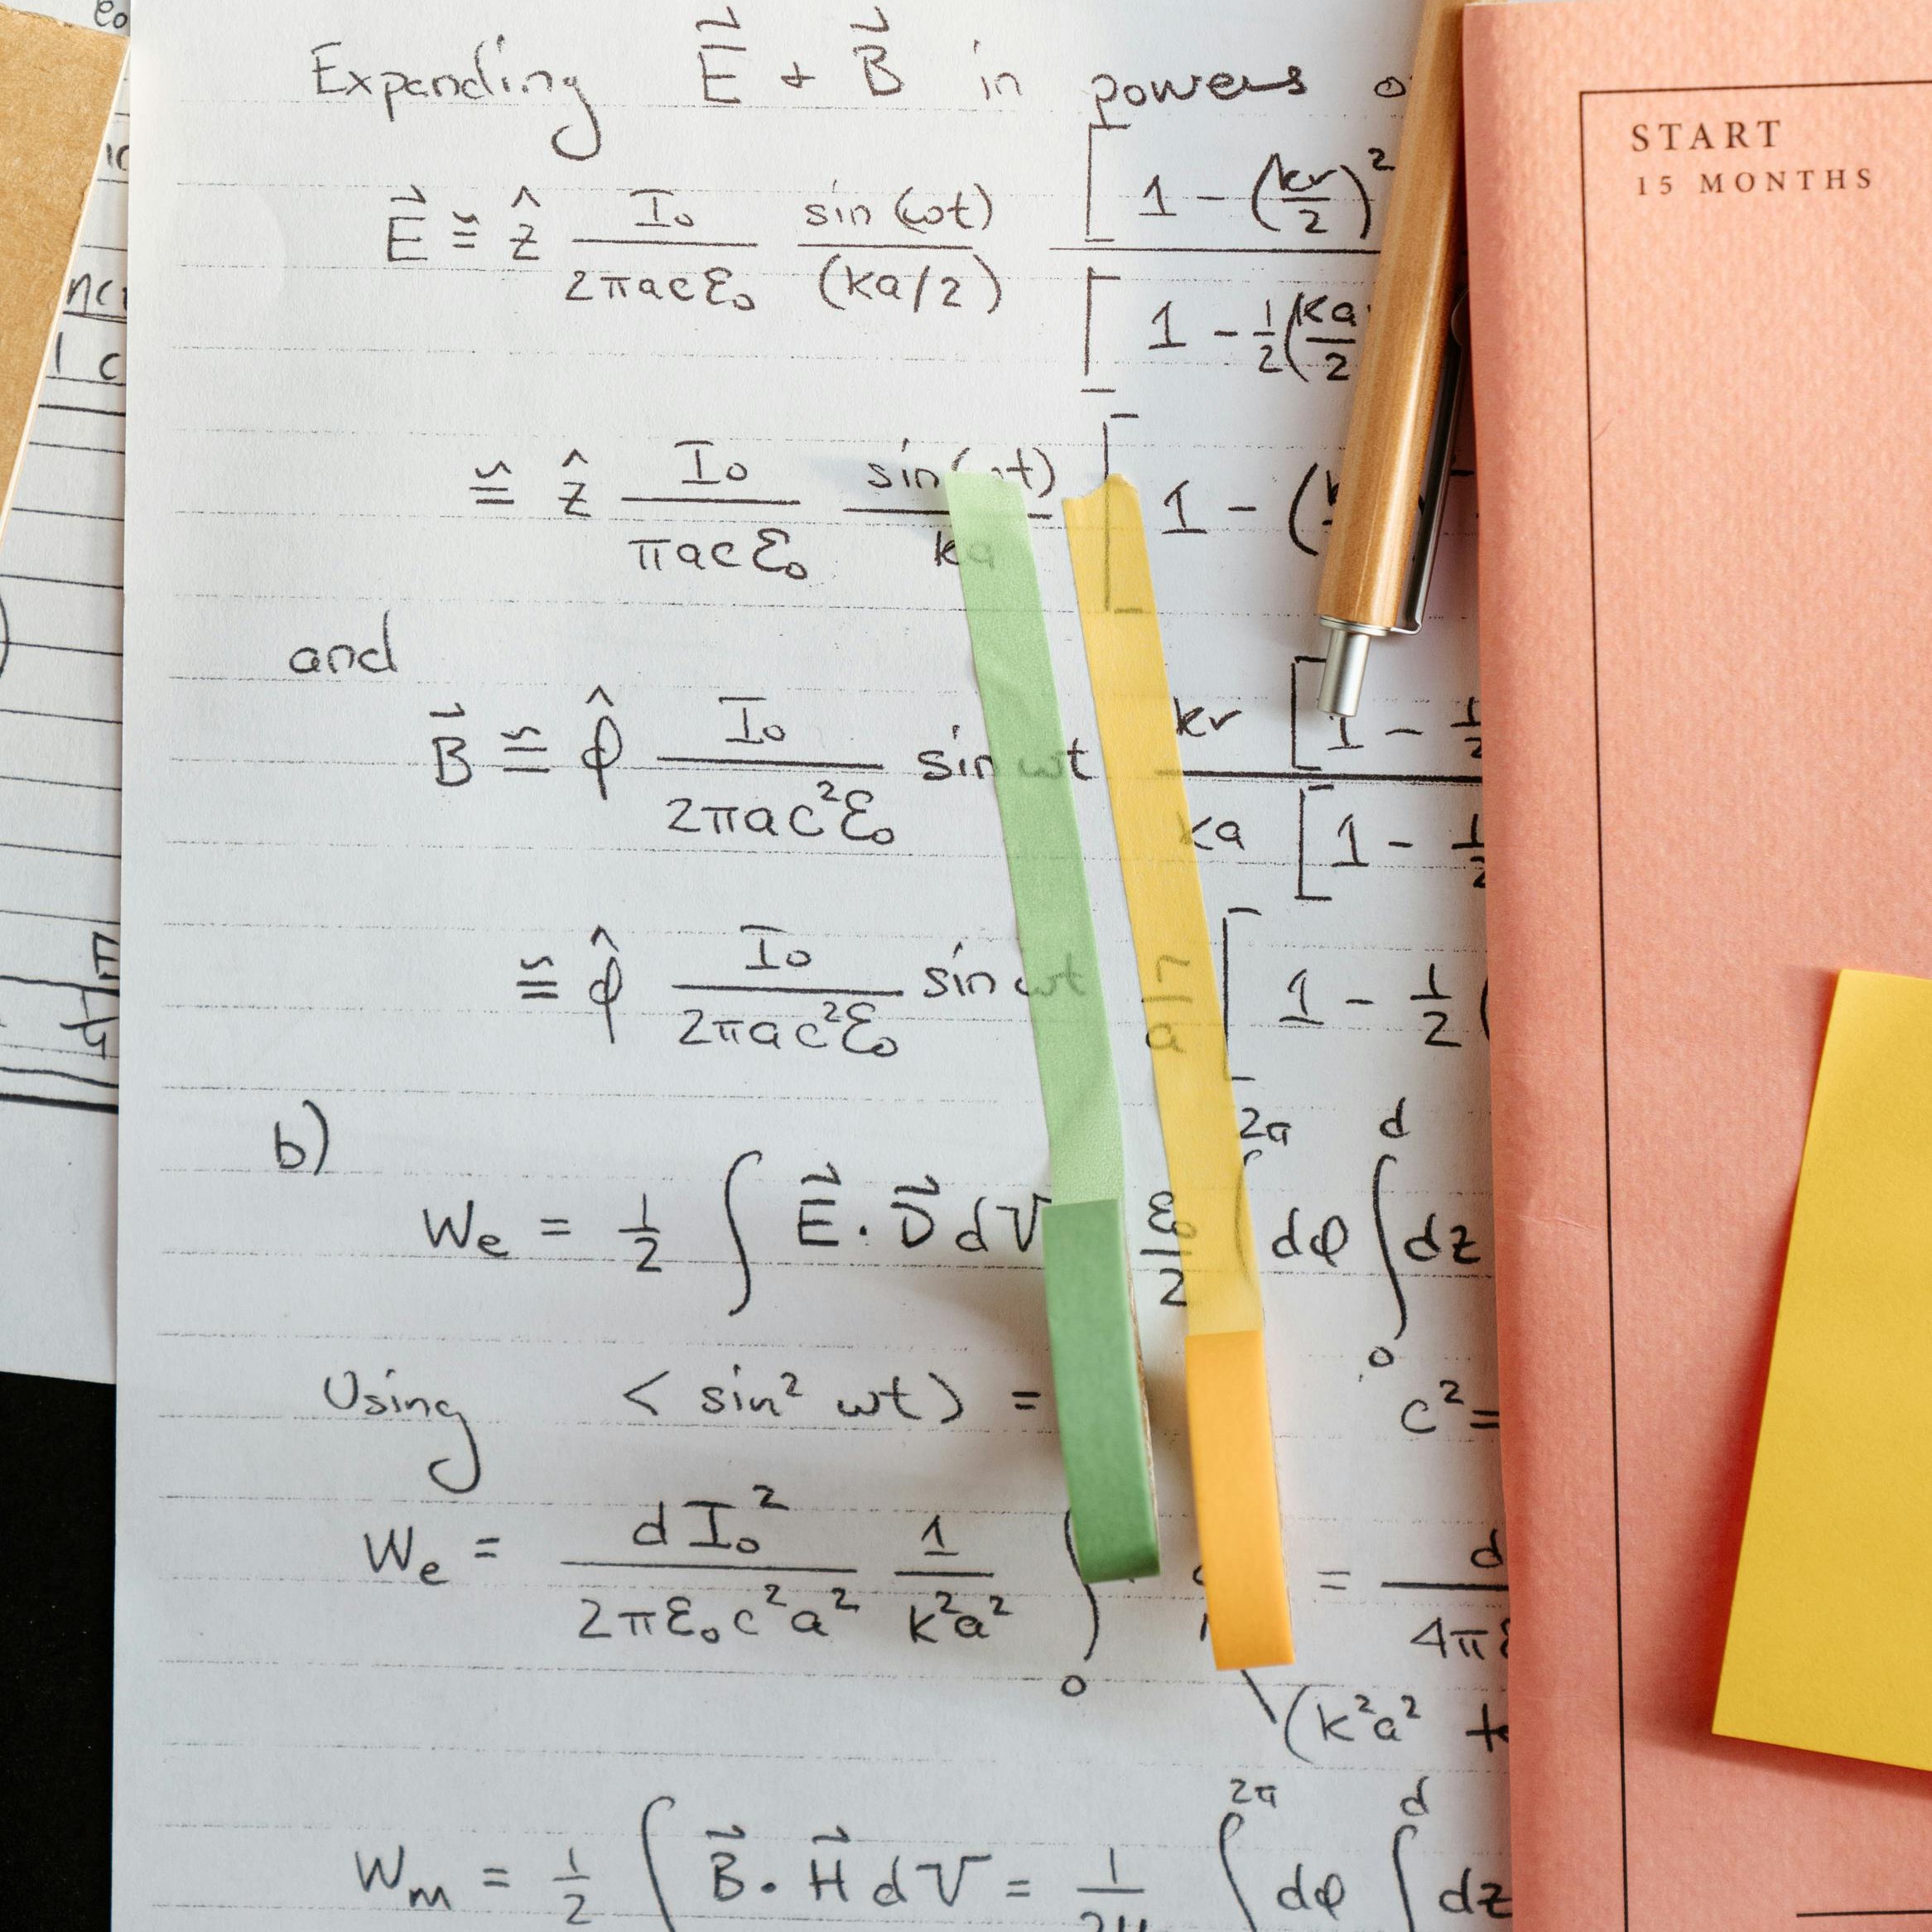 Expanding E⃗ + B⃗ in powers
E⃗ ≅ ẑ I₀/(2πacε₀) sin(ωt)/(ka/2) [1 - (kr/2)²] / [1 - 1/2(ka/2
≅ ẑ I₀/(πacε₀) sin(ωt)/ka [1 - (
and
B⃗ ≅ φ̂ I₀/(2πac²ε₀) sin ωt kr [1 - 1/2 / ka [1 - 1/2
≅ φ̂ I₀/(2πac²ε₀) sin ωt r/a [1 - 1/2 (
b)
We = 1/2 ∫ E⃗ · D⃗ dV ε₀/2 ∫^2π dφ ∫₀^d dz
Using < sin² ωt > = c² =
We = d I₀²/(2πε₀c²a²) 1/(k²a²) ∫₀ = d/4π
(k²a²
Wm = 1/2 ∫ B⃗ · H⃗ dV = 1/2μ ∫^2π dφ ∫^d dz
START
15 MONTHS